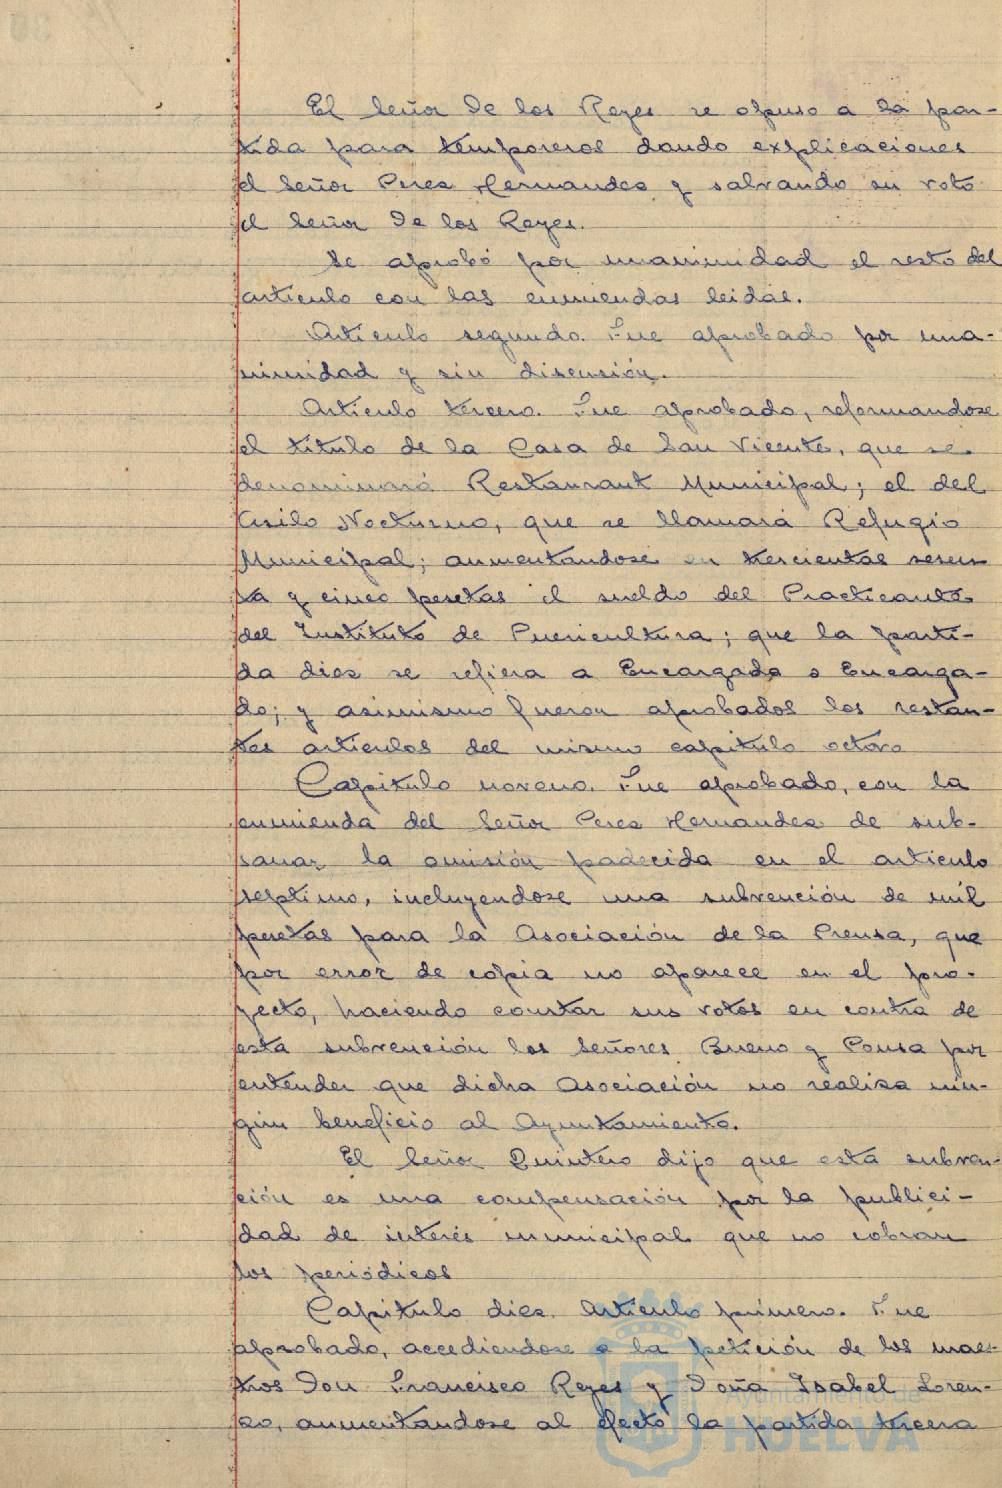 El Señor De los Reyes se opuso a la par-
tida para temporeros dando explicaciones
el Señor Perez Hernandez y salvando su voto
el Señor De los Reyes.
Se aprobó por unanimidad el resto del
artículo con las enmiendas leidas.
Artículo segundo. Fue aprobado por una-
nimidad y sin discusión.
Artículo tercero. Fue aprobado, reformandose
el título de la Casa de San Vicente, que se
denominará Restaurant Municipal; el del
Asilo Nocturno, que se llamará Refugio
Municipal; aumentandose en trescientas sesen-
ta y cinco pesetas el sueldo del Practicante
del Instituto de Puericultura; que la parti-
da diez se refiera a Encargada o Encarga-
do; y asimismo fueron aprobados los restan-
tes artículos del mismo capítulo octavo
Capítulo noveno. Fue aprobado, con la
enmienda del Señor Perez Hernandez de sub-
sanar la omisión padecida en el artículo
séptimo, incluyendose una subvención de mil
pesetas para la Asociación de la Prensa, que
por error de copia no aparece en el pro-
yecto, haciendo constar sus votos en contra de
esta subvención los Señores Bueno y Ponsa por
entender que dicha Asociación no realiza nin-
gún beneficio al Ayuntamiento.
El Señor Quintero dijo que esta subven-
ción es una compensación por la publici-
dad de interés municipal que no cobran
los periódicos
Capítulo diez. Artículo primero. Fue
aprobado, accediendose a la petición de los maes-
tros Don Francisco Reyes y Doña Isabel Loren-
zo, aumentandose al efecto la partida tercera
Ayuntamiento de
HUELVA